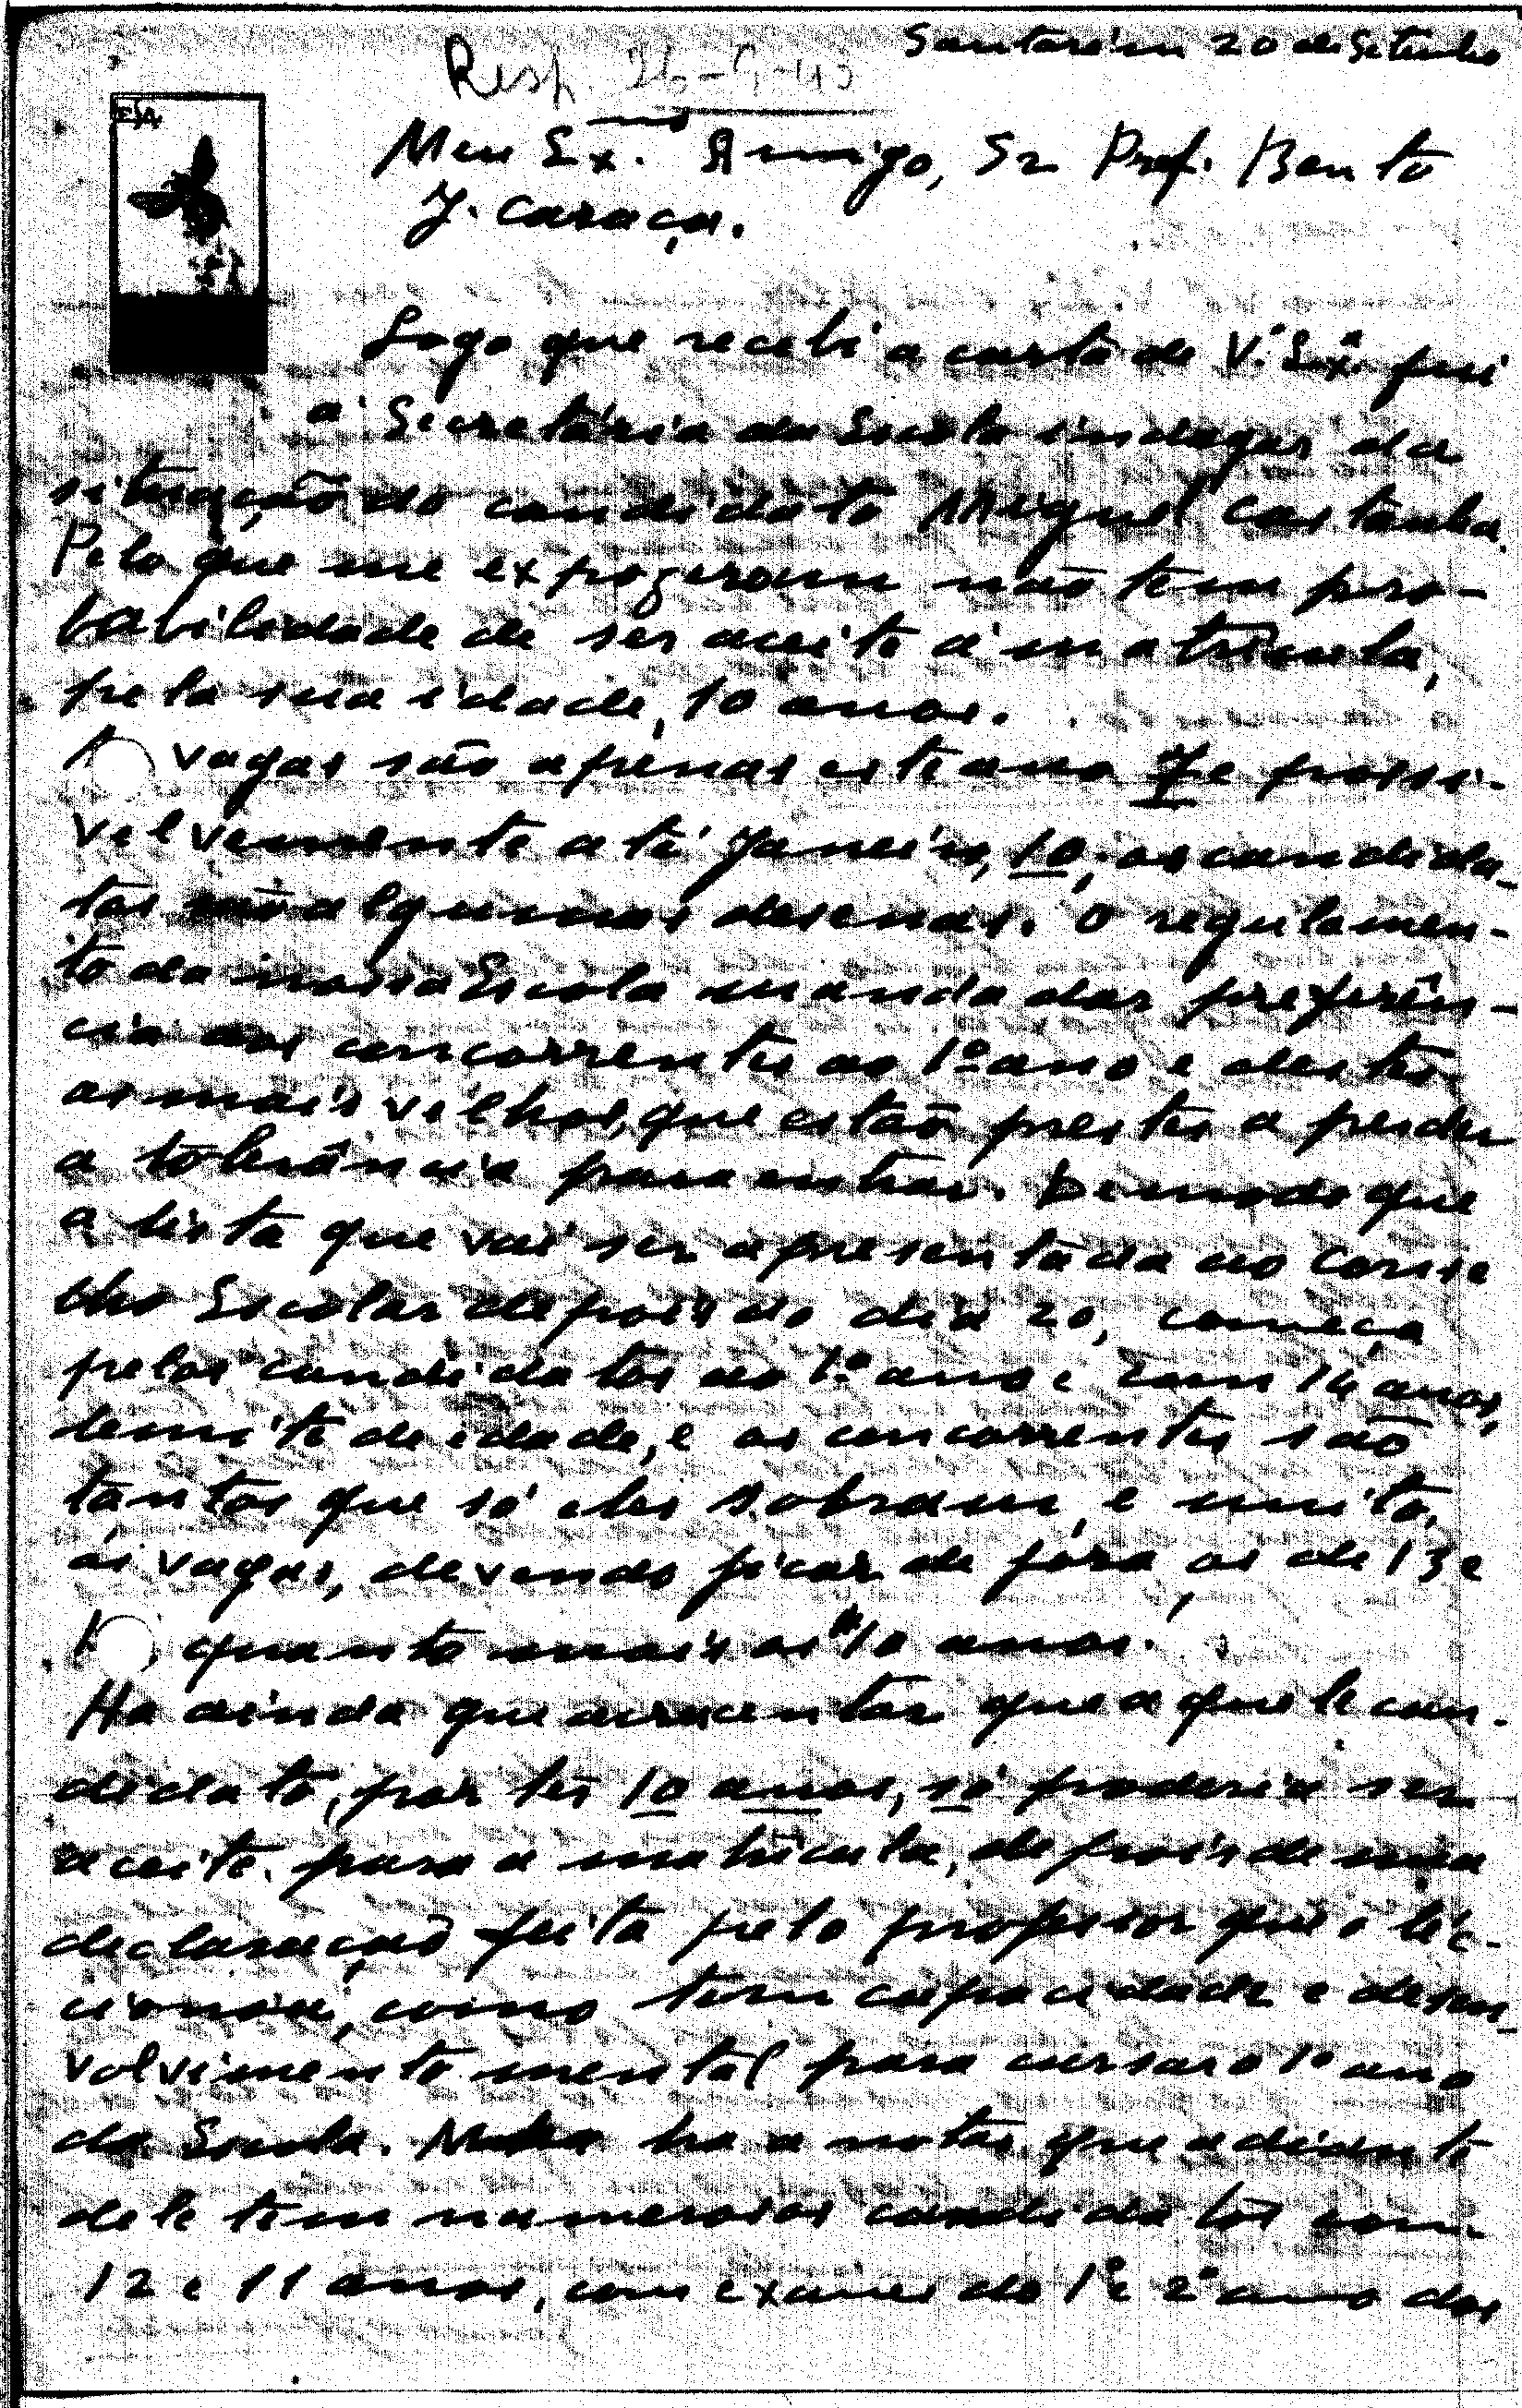 Santarém 20 de Setembro
Resp. 26-9-43
ESA
Meu Ex.mo Amigo, Sr Prof. Bento
J. Caraça.
Logo que recebi a carta de V. Ex.ª fui
á Secretária da Escola indagar da
situação do candidato Miguel Castanha.
Pelo que me expozeram não tem pro-
babilidade de ser aceite á matricula,
pela sua idade, 10 anos.
vagas são apenas este ano 7 e possi-
velvemente até Janeiro, 10; os candida-
tos são algumas desenas. O regulamen-
to da nossa Escola manda dar preferên-
cia aos concorrentes ao 1º ano e destes
os mais velhos, que estão prestes a perder
a tolerância para entrar. De modo que
a lista que vai ser apresentada ao Conse
lho Escolar depois do dia 20, começa
pelos candidatos ao 1.º ano e com 14 anos,
limite de idade, e os concorrentes são
tantos que só eles sobram, e muito,
ás vagas, devendo ficar de fóra, os de 13 e
quanto mais os 10 anos.
Ha ainda que acrescentar que aquele can-
didato, por ter 10 anos, só poderia ser
aceite para a matricula, depois de uma
declaração feita pelo professor que o léc-
cionou, como tem capacidade e desen-
volvimento mental para cursar o 1º ano
da Escola. ha a notar que adiante
dele tem numerosos candidatos com
12 e 11 anos, com exames do 1º e 2º ano dos